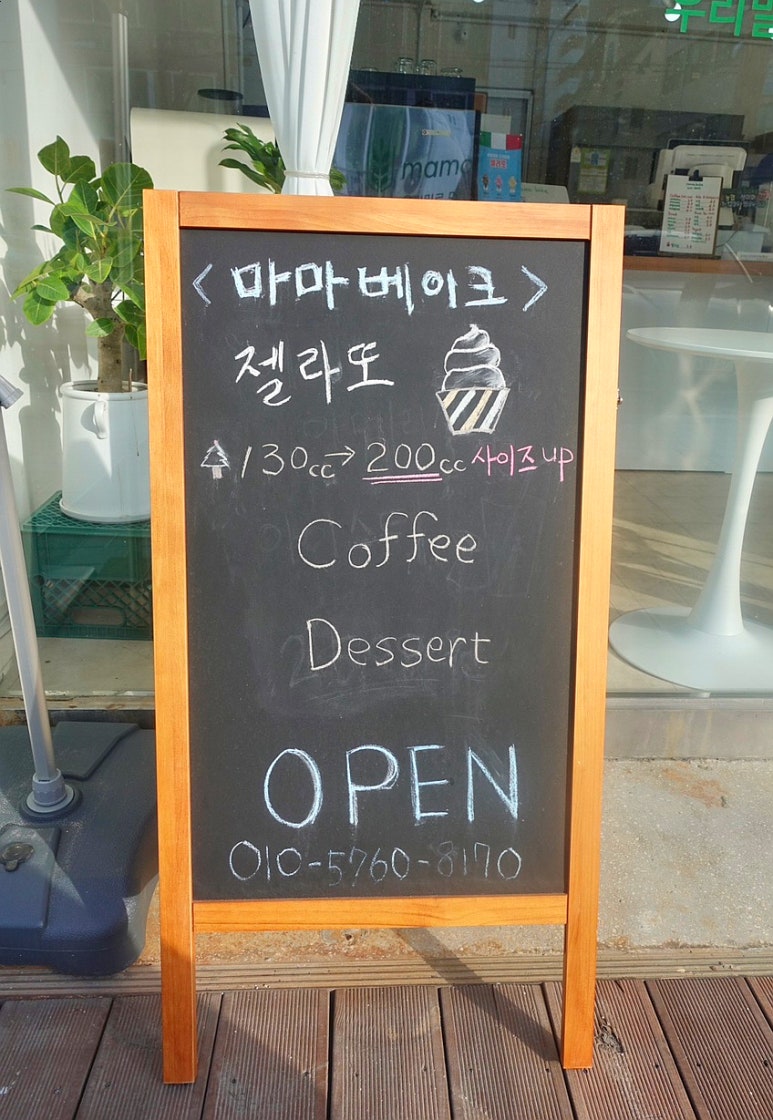 우리밀
mama
<마마베이크>
젤라또
130cc→200cc 사이즈up
Coffee
Dessert
OPEN
010-5760-8170